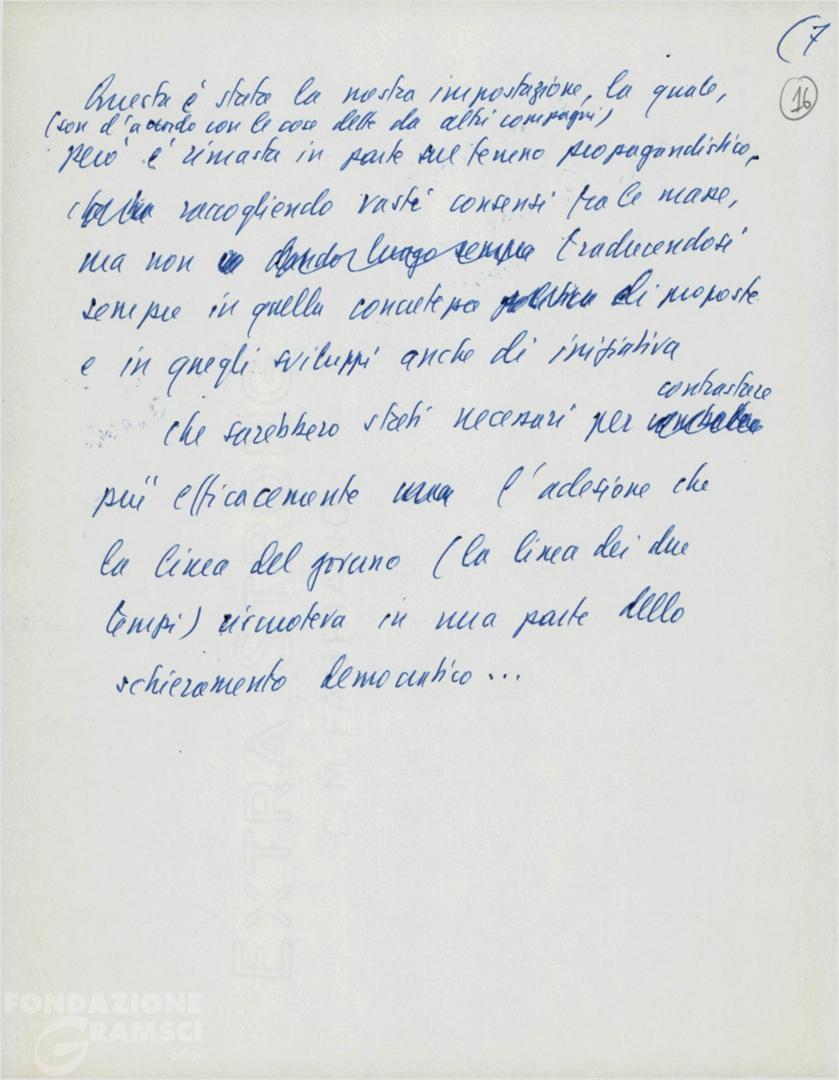 (7
16
Questa è stata la nostra impostazione, la quale,
(son d'accordo con le cose dette da altri compagni)
però è rimasta in parte sul terreno propagandistico,
raccogliendo vasti consensi tra le masse,
ma non dando luogo sempre traducendosi
sempre in quella concretezza politica di proposte
e in quegli sviluppi anche di iniziativa
contrastare
che sarebbero stati necessari per
più efficacemente l'adesione che
la linea del governo (la linea dei due
tempi) riscuoteva in una parte dello
schieramento democratico...
EXTRA STRONG
FONDAZIONE
GRAMSCI
onlus